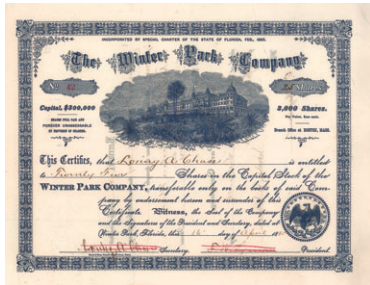 INCORPORATED BY SPECIAL CHARTER OF THE STATE OF FLORIDA, FEB., 1885.
The Winter Park Company
No.
Shares
Capital, $300,000
2,000 Shares.
FOREVER UNASSESSABLE
Branch Office at BOSTON, MASS.
This Certifies, that Loring A. Chase is entitled
to Twenty Four Shares in the Capital Stock of the
WINTER PARK COMPANY, transferable only on the books of said Com-
pany by endorsement hereon and surrender of this
Certificate. Witness, the Seal of the Company
and the Signatures of the President and Secretary, dated at
Winter Park, Florida, this day of April
Secretary.
President.